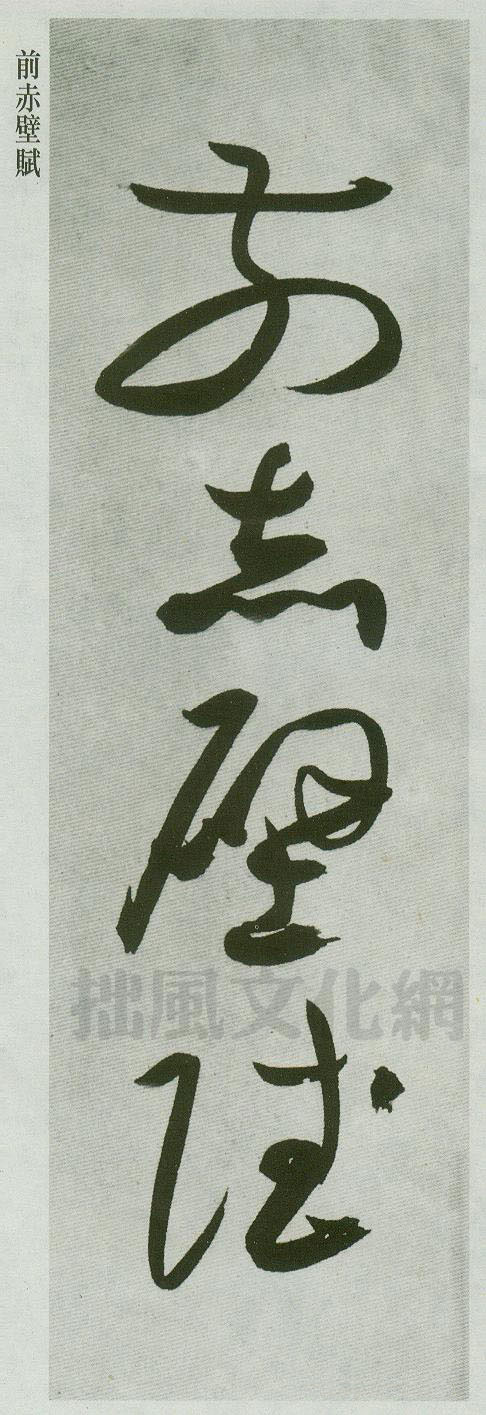 前赤壁賦
前赤壁賦
拙風文化網